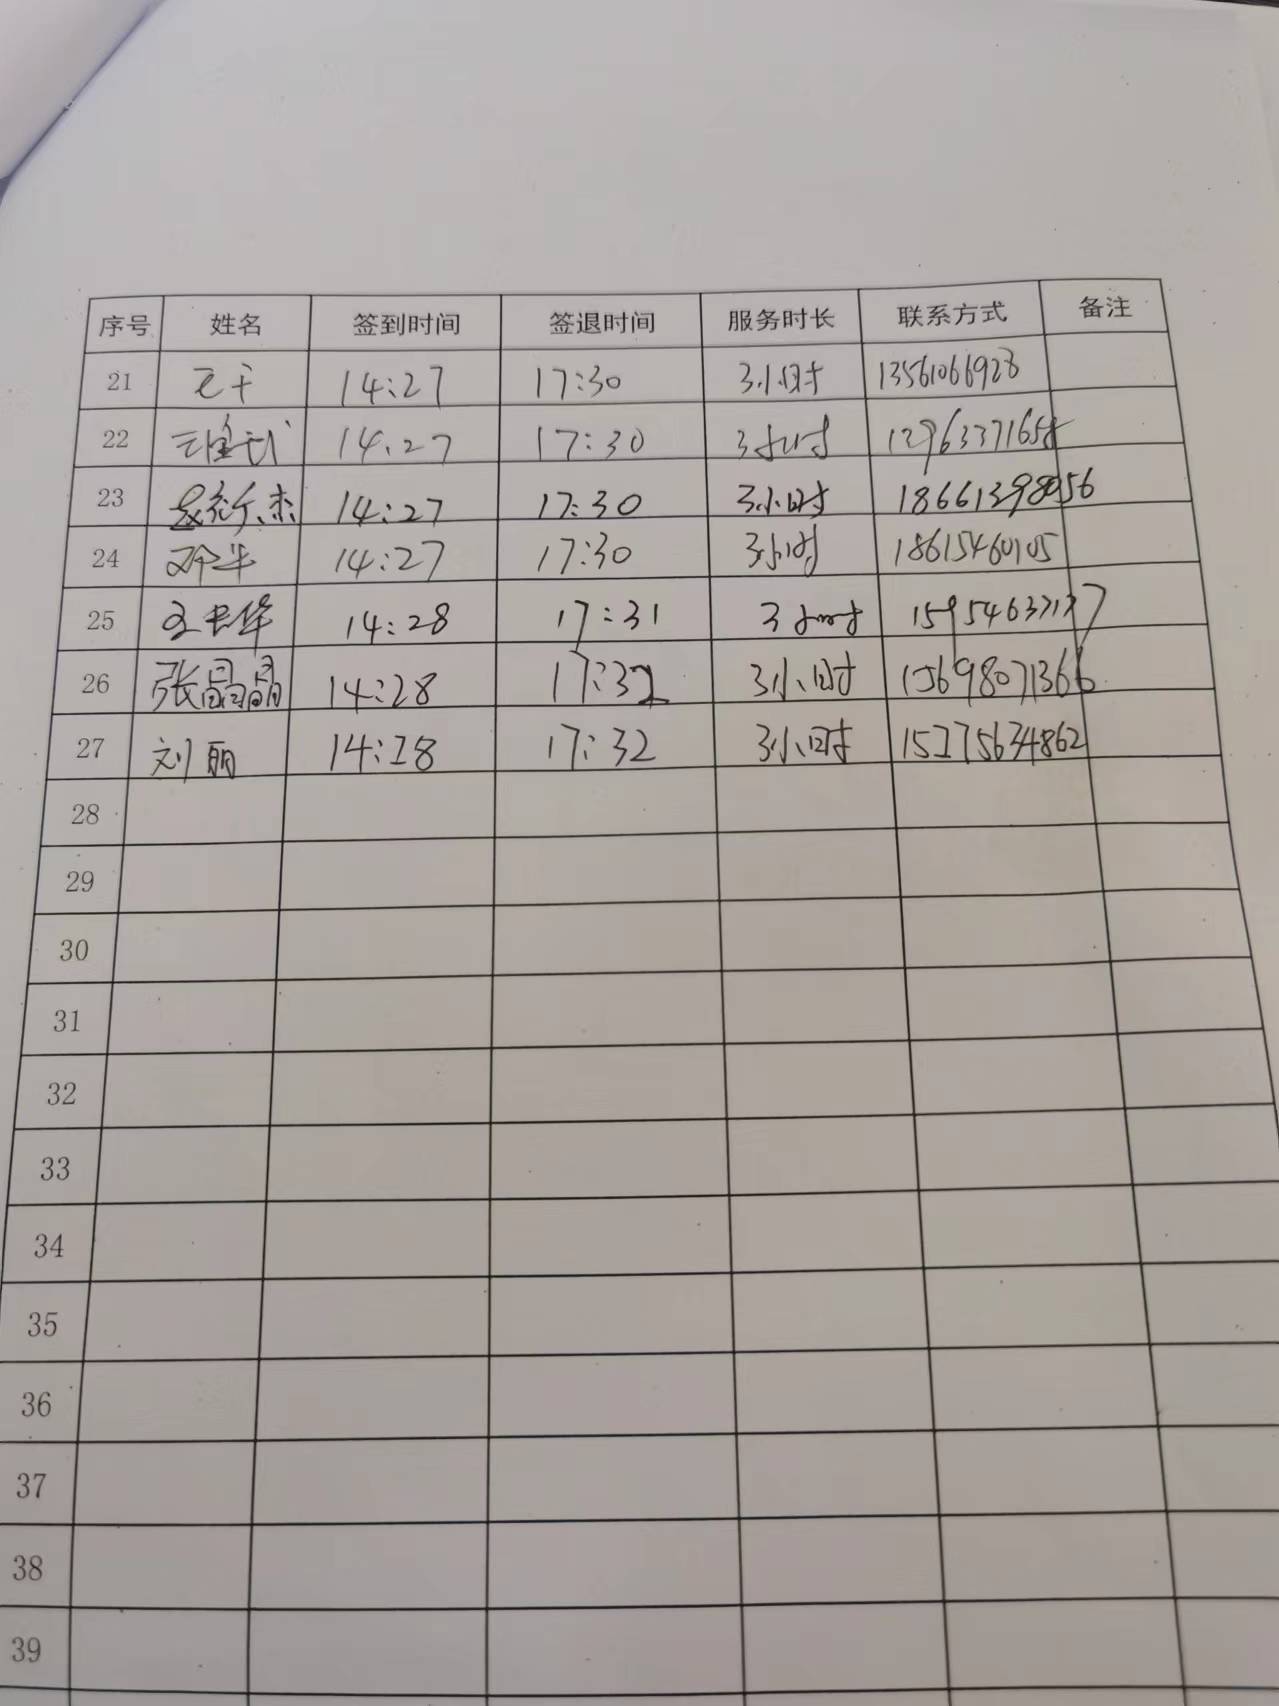 序号 姓名 签到时间 签退时间 服务时长 联系方式 备注
21 14:27 17:30 3小时 13561066928
22 14:27 17:30 3小时
23 14:27 17:30 3小时 18661398056
24 14:27 17:30 3小时 18615460105
25 14:28 17:31 3小时
26 张晶晶 14:28 17:32 3小时 15698071366
27 刘丽 14:28 17:32 3小时 15275634862
28
29
30
31
32
33
34
35
36
37
38
39